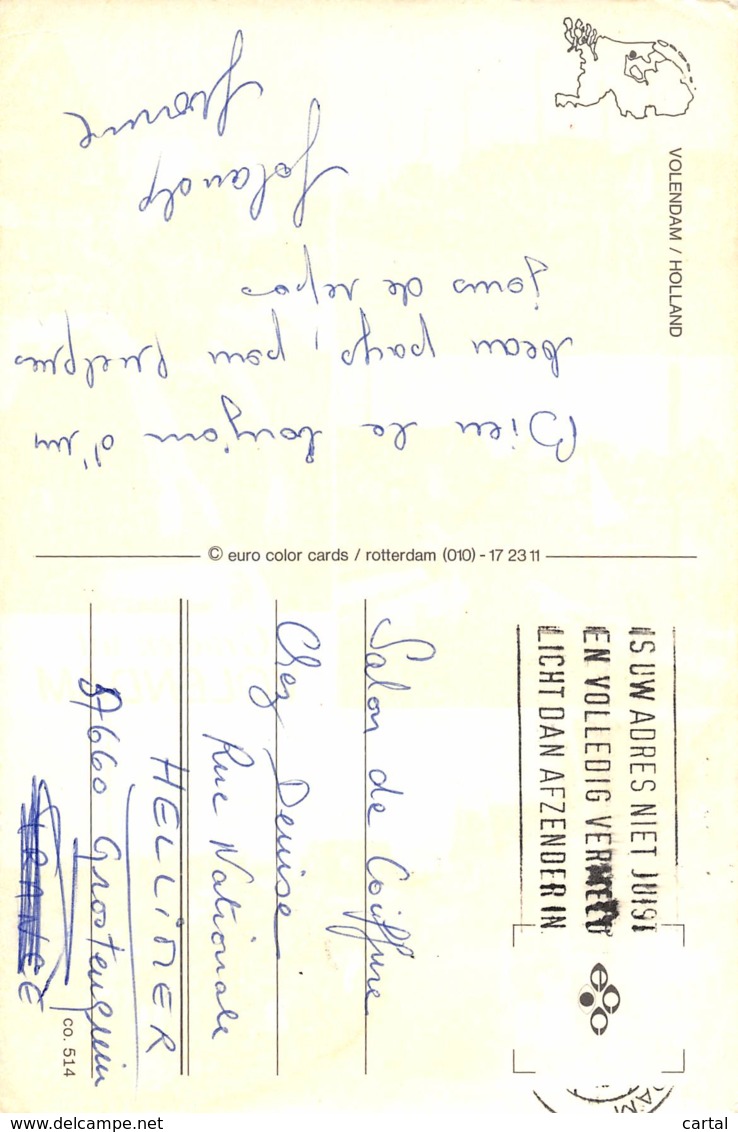 Bien le bonjour d'un
beau pays, pour quelques
jours de repos
Yolande
Yvonne
VOLENDAM / HOLLAND
© euro color cards / rotterdam (010) - 17 23 11
IS UW ADRES NIET JUIST
EN VOLLEDIG VERMELD
LICHT DAN AFZENDER IN
ecc
Salon de Coiffure
Chez Denise
Rue Nationale
HELLIMER
57660 Grostenquin
FRANCE
co. 514
delcampe.net
cartal